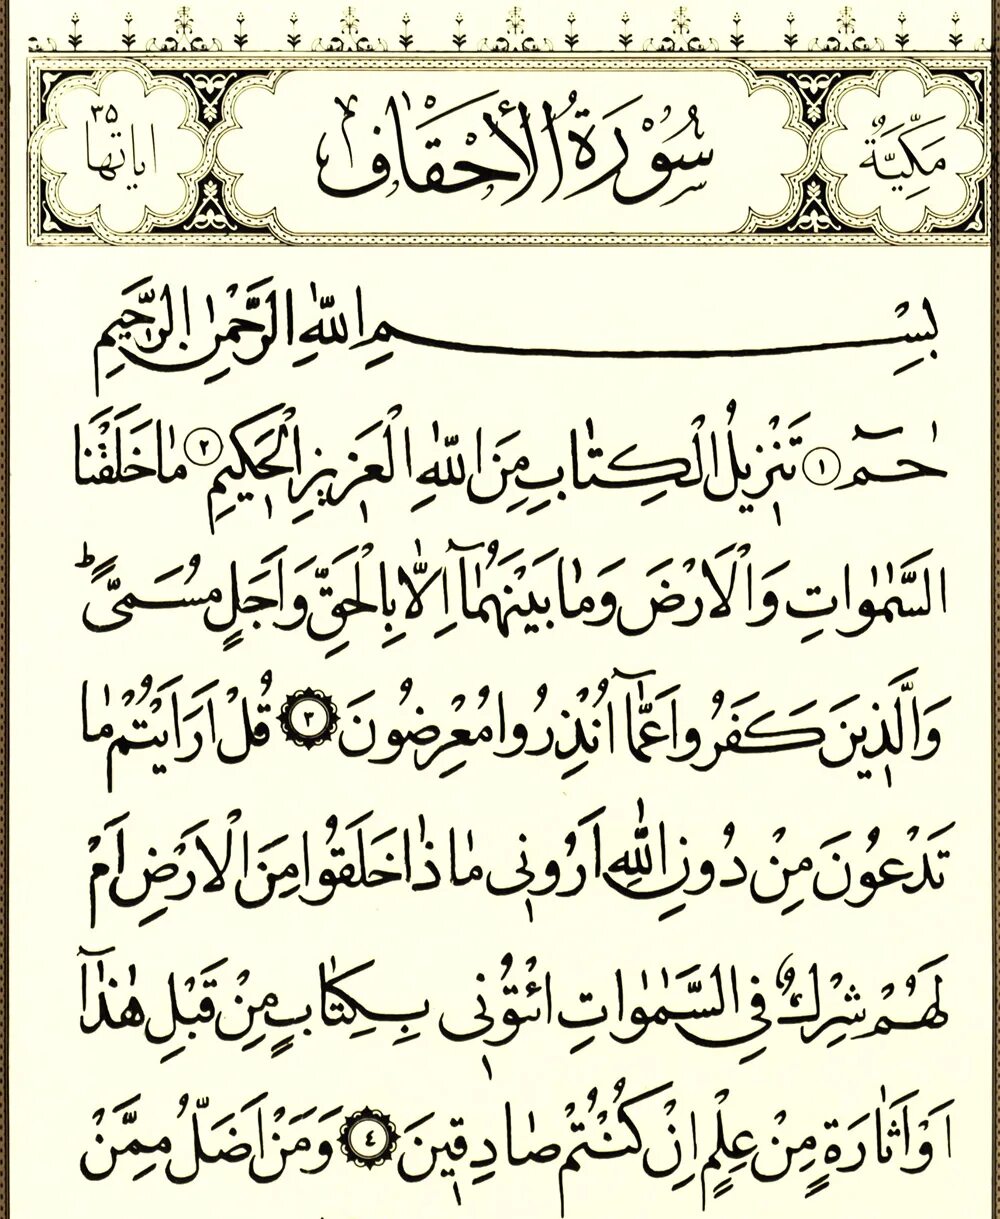 مَكِّيَّةٌ سُورَةُ الْأَحْقَافِ اٰيَاتُهَا ٣٥
بِسْمِ اللّٰهِ الرَّحْمٰنِ الرَّحِيمِ
حٰمٓ ١ تَنْزِيلُ الْكِتَابِ مِنَ اللّٰهِ الْعَزِيزِ الْحَكِيمِ ٢ مَا خَلَقْنَا
السَّمٰوَاتِ وَالْاَرْضَ وَمَا بَيْنَهُمَٓا اِلَّا بِالْحَقِّ وَاَجَلٍ مُسَمًّىۜ ط
وَالَّذِينَ كَفَرُوا عَمَّٓا اُنْذِرُوا مُعْرِضُونَ ٣ قُلْ اَرَاَيْتُمْ مَا
تَدْعُونَ مِنْ دُونِ اللّٰهِ اَرُونِي مَاذَا خَلَقُوا مِنَ الْاَرْضِ اَمْ
لَهُمْ شِرْكٌ فِي السَّمٰوَاتِ ائْتُونِي بِكِتَابٍ مِنْ قَبْلِ هٰذَٓا
اَوْ اَثَارَةٍ مِنْ عِلْمٍ اِنْ كُنْتُمْ صَادِقِينَ ٤ وَمَنْ اَضَلُّ مِمَّنْ